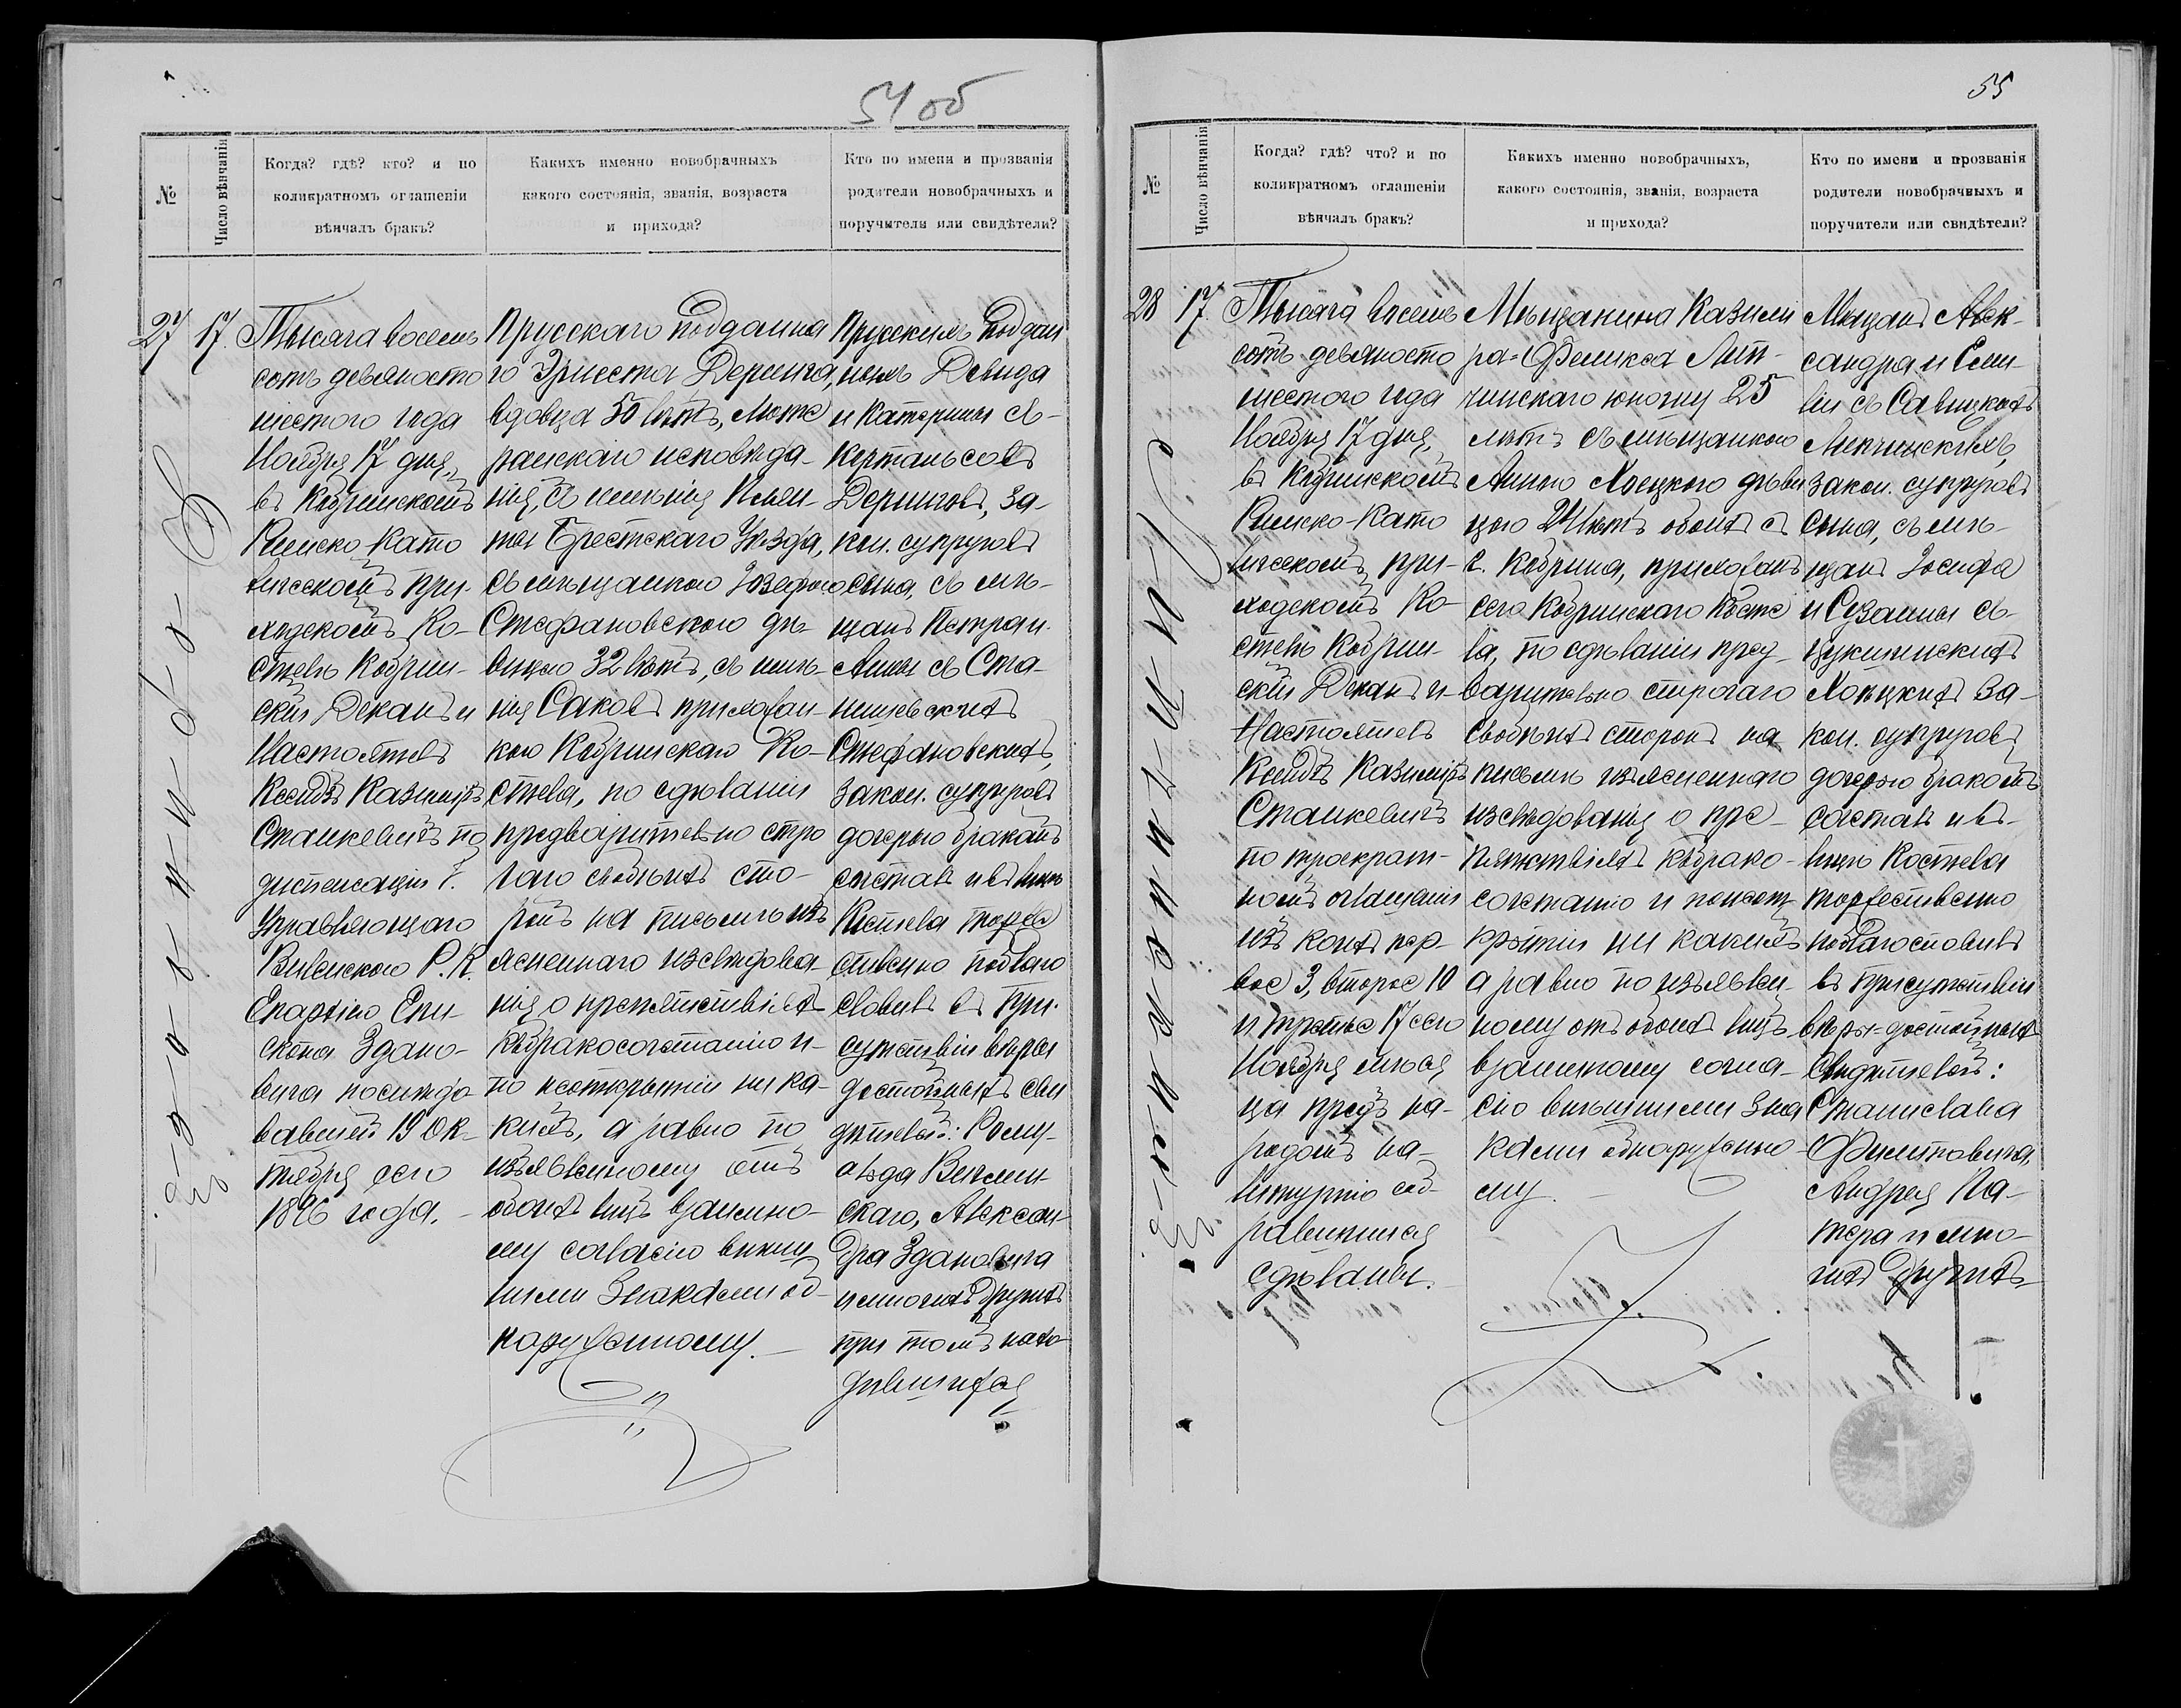 54 об
№
Число вѣнчанія
Когда? гдѣ? кто? и по
коликратномъ оглашеніи
вѣнчалъ бракъ?
Какихъ именно новобрачныхъ
какого состоянія, званія, возраста
и прихода?
Кто по имени и прозванія
родители новобрачныхъ и
поручители или свидѣтели?
27
17.
Тысяча восемь
сотъ девяносто
шестого года
Ноября 17 дня,
въ Кобринскомъ
Римско Като
лическомъ при-
ходскомъ Ко-
стелѣ Кобрин-
скій Деканъ и
Настоятель
Ксендзъ Казимиръ
Станкевичъ по
диспенсаціи Г.
Управляющаго
Виленскою Р. К.
Епархіею Епи-
скопа Здано-
вича послѣдо
вавшей 19 Ок-
тября сего
1896 года. -
Прусскаго подданна
го Эрнеста Деринга,
вдовца 50 лѣтъ, Люте
ранскаго исповѣда-
нія, съ имѣнія
Брестскаго Уѣзда,
съ мѣщанкою Юзефою
Стефановскою дѣ-
вицею 32 лѣтъ, съ имѣ-
нія Саковъ прихожан-
кою Кобринскаго Ко-
стела, по сдѣланіи
предварительно стро
гаго съ обоихъ сто-
ронъ на письмѣ изъ
ясненнаго изслѣдова-
нія о препятствіяхъ
къ бракосочетанію и
по неоткрытіи ни ка-
кихъ, а равно по
изъявленному отъ
обоихъ лицъ взаимно-
му согласію внѣш
ними знаками об-
наруженному. -
Прусскихъ поддан
ныхъ Давида
и Катерины съ
Деринговъ, за-
кон. супруговъ
сына, съ мѣ-
щанъ Петра и
Анны съ Ста-
нишевскихъ
Стефановскихъ,
закон. супруговъ
дочерью бракомъ
сочеталъ и въ лицѣ
Костела торже
ственно поблаго
словилъ въ при-
сутствіи вѣры
достойныхъ сви
дѣтелей: Рому-
альда
скаго, Алексан-
дра Здановича
и многихъ другихъ
при томъ нахо-
дившихся
55
№
Число вѣнчанія
Когда? гдѣ? что? и по
коликратномъ оглашеніи
вѣнчалъ бракъ?
Какихъ именно новобрачныхъ,
какого состоянія, званія, возраста
и прихода?
Кто по имени и прозванія
родители новобрачныхъ и
поручители или свидѣтели?
28
17.
Тысяча восемь
сотъ девяносто
шестого года
Ноября 17 дня,
въ Кобринскомъ
Римско-Като
лическомъ при-
ходскомъ Ко-
стелѣ Кобрин
скій Деканъ и
Настоятель
Ксендзъ Казимиръ
Станкевичъ
по троекрат-
номъ оглашеніи
изъ коихъ пер-
вое 3, второе 10
и третье 17 сего
Ноября мѣся
ца предъ на-
родомъ на
Литургію соб-
равшимся
сдѣланы.
Мѣщанина Казими
ра-Феликса
юношу 25
лѣтъ съ мѣщанкою
Анною дѣви
цею 24 лѣтъ обоихъ съ
г. Кобрина, прихожанъ
сего Кобринскаго Косте
ла, по сдѣланіи пред
варительно строгаго
съ обоихъ сторонъ на
письмѣ изъясненнаго
изслѣдованія о пре-
пятствіяхъ къ брако-
сочетанію и по неот
крытіи ни какихъ
а равно по изъявлен-
ному отъ обоихъ лицъ
взаимному согла-
сію внѣшними зна
ками обнаруженно-
му. -
Мѣщанъ Алек-
сандра и
съ Савицкихъ
закон. супруговъ
сына, съ мѣ-
щанъ Іосифа
и Сузанны съ
за-
кон. супруговъ
дочерью бракомъ
сочеталъ и въ
лицѣ Костела
торжественно
поблагословилъ
въ присутствіи
вѣры-достойныхъ
свидѣтелей:
Станислава
Андрея
и мно-
гихъ другихъ